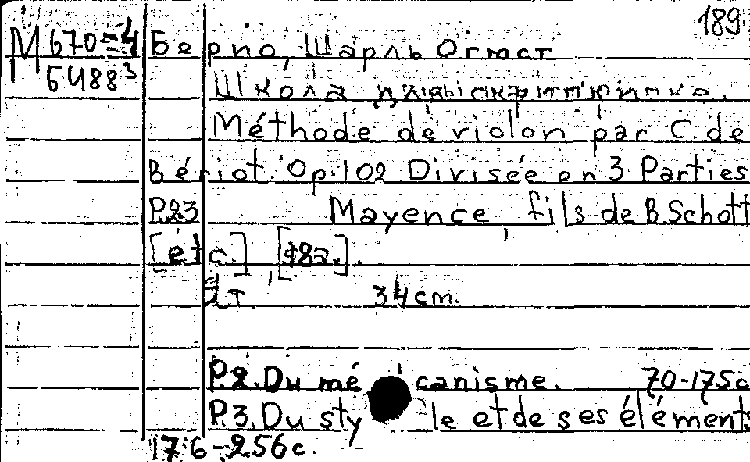 189
М 670-4 Берио, Шарль Огюст
5488³
Школа для скрипки.
Méthode de violon par C. de
Bériot. Op. 102 Divisée en 3 Parties
P.23 Mayence, fils de B. Schott
[etc.],
2 т. 34 cm.
P.2. Du mécanisme. 70-175 c
P.3. Du style et de ses élément
176-256 c.